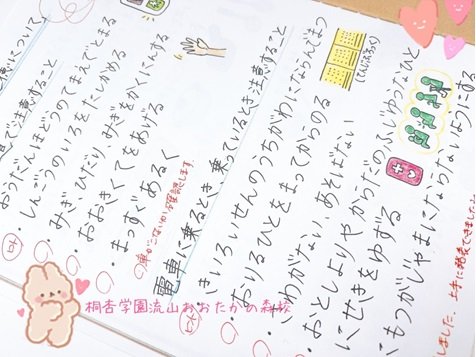 注意すること
・おうだんほどうのてまえでとまる
・しんごうのいろをたしかめる
・みぎ、ひだり、みぎをかくにんする
・おおきくてをあげる
・まっすぐあるく
電車に乗るとき、乗っているとき注意すること
・きいろいせんのうちがわにならんでまつ
(てんじぶろっく)
・おりるひとをまってからのる
さわがない、あそばない
・おとしよりやからだのふじゆうなひと
にせきをゆずる
もつがじゃまにならないようにする
しました。上手に発表できました
桐杏学園流山おおたかの森校